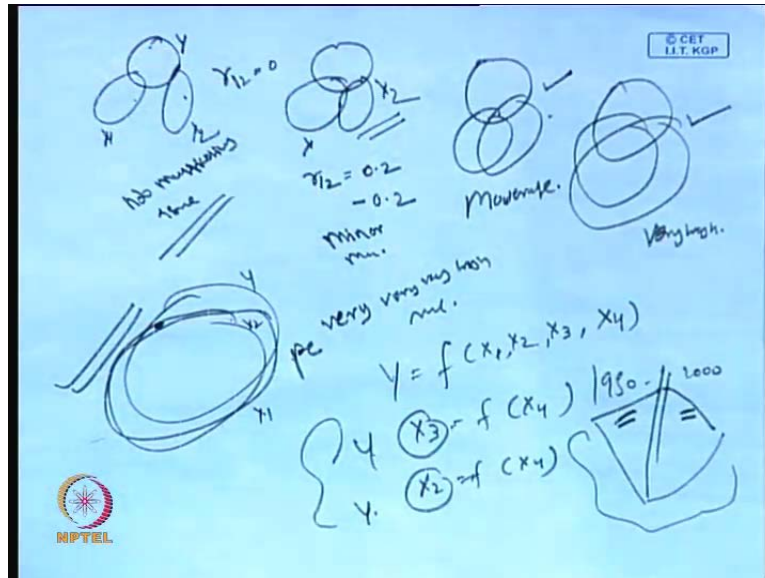 © CET
I.I.T. KGP
Y
r12 = 0
X
X2
not
X2
X
r12 = 0.2
- 0.2
minor
mu.
Moderate.
Very high.
Y
X2
X1
very very very high
mul.
Y = f (X1, X2, X3, X4)
1950 - 2000
Y X3 = f (X4)
Y. X2 = f (X4)
NPTEL